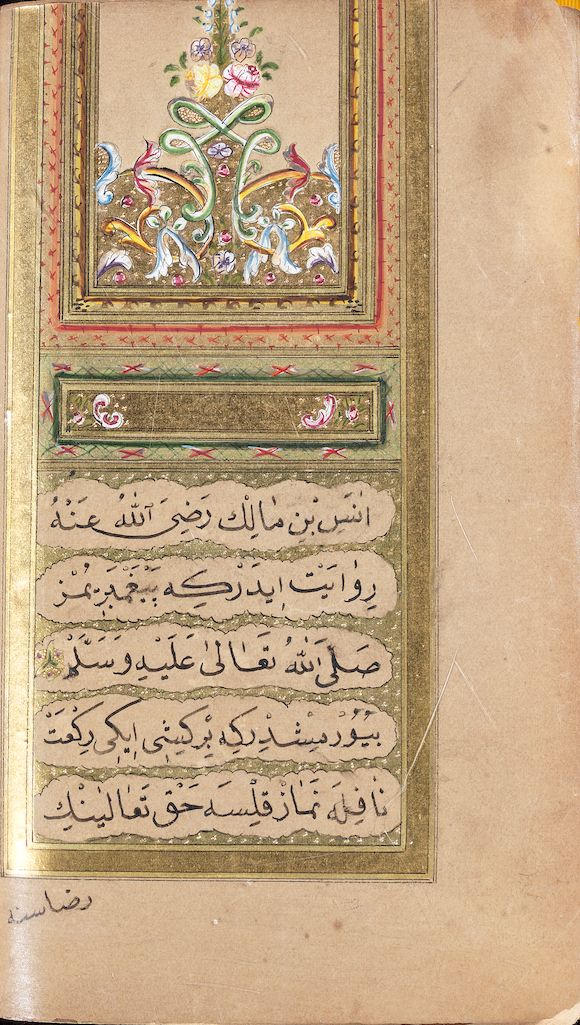 اَنَسْ بْنِ مٰالِكْ رَضِیَ اَللّٰهُ عَنْهُ
رِوٰايَتْ اِيدَرْكِه پَيْغَمْبَرِيمُزْ
صَلَی اللّٰهُ تَعَالىٰ عَلَيْهِ وَسَلَّمْ
بُيُوُرْمِشْدِرْكِه بْرِكِيشِی اِيكِی رِكْعَتْ
نٰافِلَه نَمٰازْ قِلْسَه حَقْ تَعٰالَينْكِ
رضاسنه